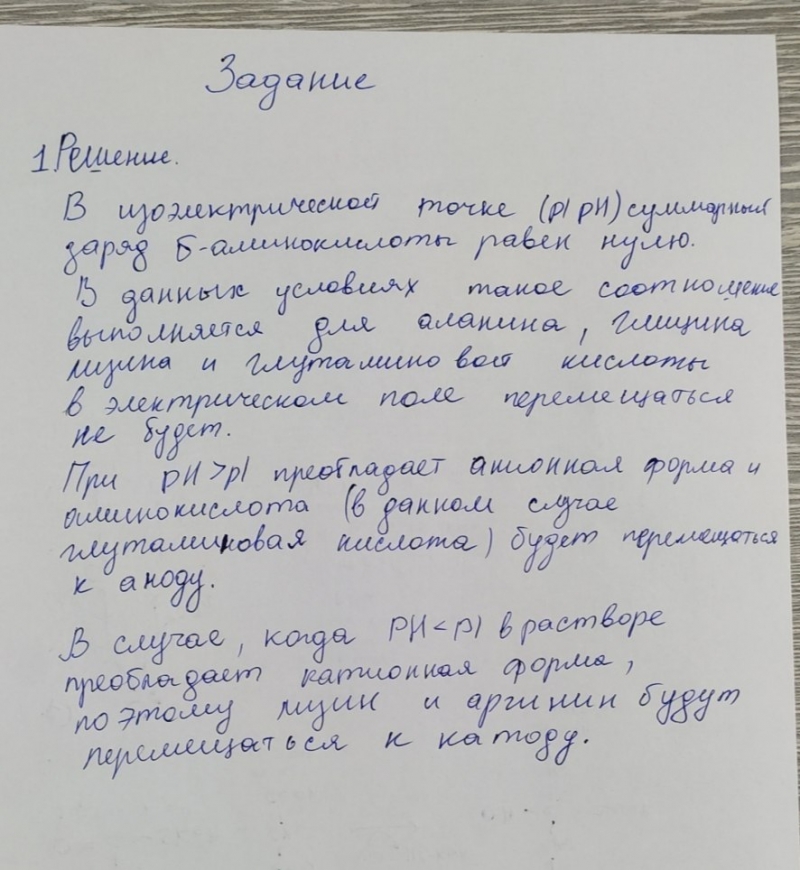 Задание
1 Решение.
В изоэлектрической точке (pI pH) суммарный
заряд Б-аминокислоты равен нулю.
В данных условиях такое соотношение
выполняется для аланина, глицина
лизина и глутаминовой кислоты
в электрическом поле перемещаться
не будет.
При pH>pI преобладает анионная форма и
аминокислота (в данном случае
глутаминовая кислота) будет перемещаться
к аноду.
В случае, когда PH<pI в растворе
преобладает катионная форма,
поэтому лизин и аргинин будут
перемещаться к катоду.